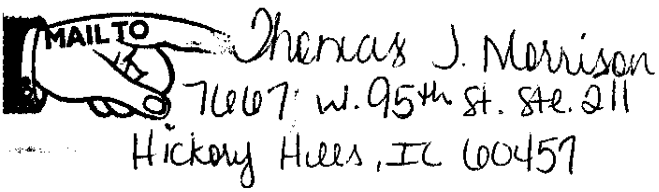 MAIL TO
Thomas J. Morrison
7667 W. 95th St. Ste. 211
Hickory Hills, IL 60457